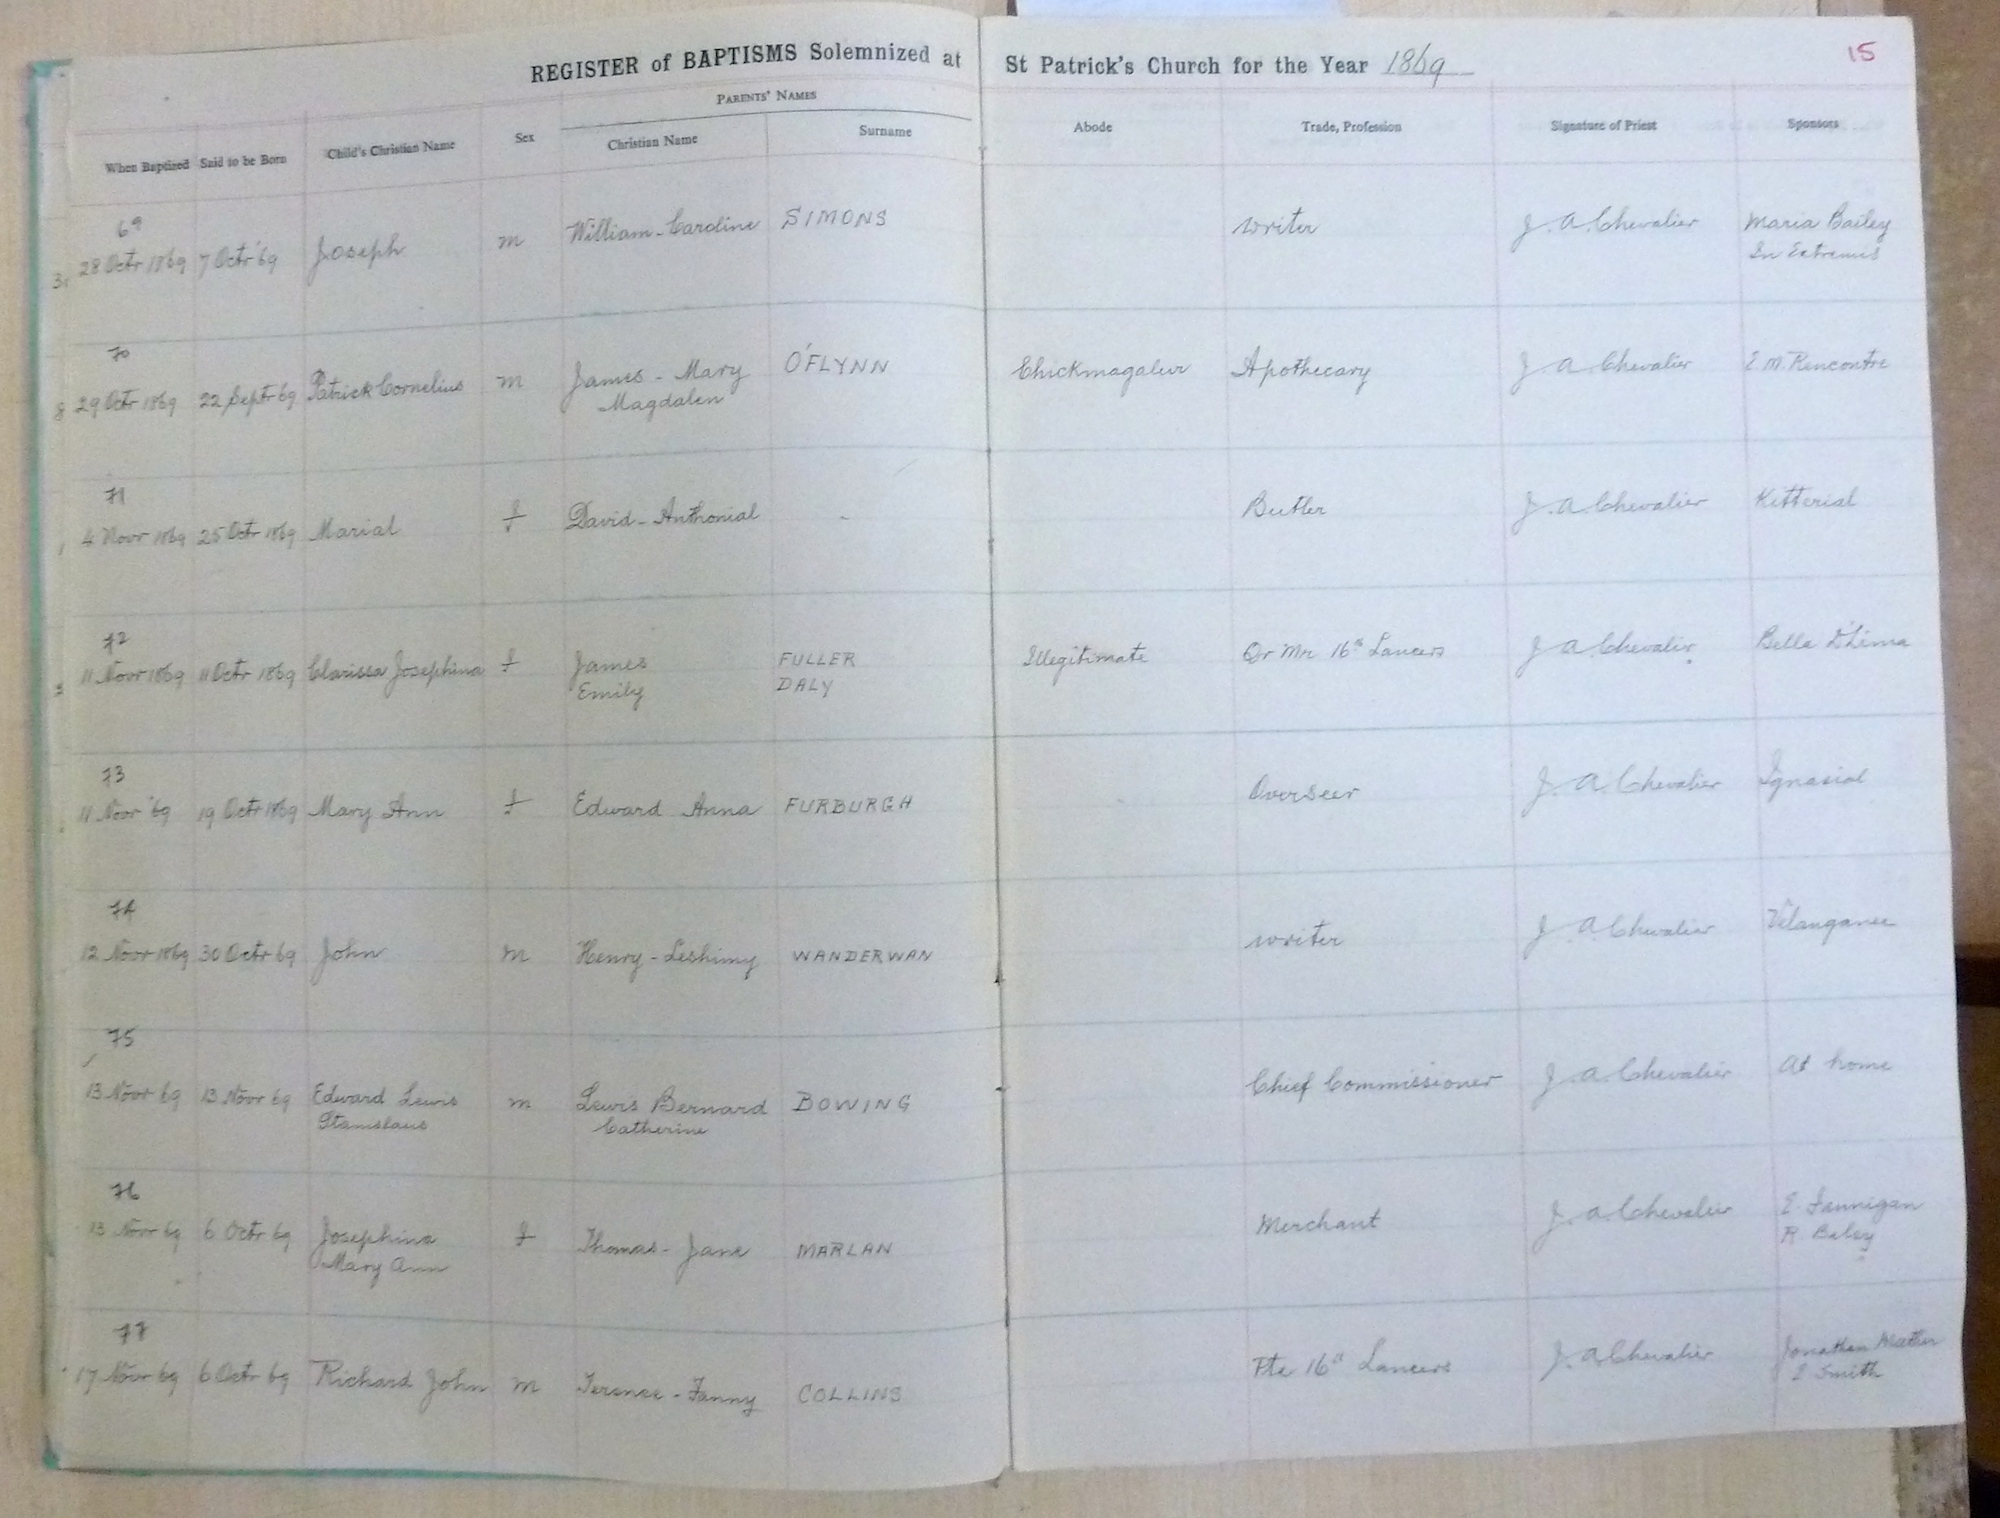 REGISTER of BAPTISMS Solemnized at St Patrick's Church for the Year 1869
15
PARENTS' NAMES
When Baptized Said to be Born Child's Christian Name Sex Christian Name Surname Abode Trade, Profession Signature of Priest Sponsors
69
28 Octr 1869 7 Octr '69 Joseph m William - Caroline SIMONS writer J. A. Chevalier Maria Bailey
In Extremis
70
29 Octr 1869 22 Septr 69 Patrick Cornelius m James - Mary O'FLYNN Chickmagalur Apothecary J A Chevalier E. M. Rencontre
Magdalen
71
4 Novr 1869 25 Octr 1869 Marial f David - Anthonial - Butler J. A. Chevalier Kitterial
72
11 Novr 1869 11 Octr 1869 Clarissa Josephina f James FULLER Illegitimate Qr Mr 16th Lancers J A. Chevalier Bella D'Lima
Emily DALY
73
11 Novr '69 19 Octr 1869 Mary Ann f Edward Anna FURBURGH Overseer J. A. Chevalier Ignasial
74
12 Novr 1869 30 Octr 69 John m Henry - Leshimy WANDERWAN writer J. A. Chevalier Vilanganee
75
13 Novr 69 13 Novr 69 Edward Lewis m Lewis Bernard BOWING Chief Commissioner J. A. Chevalier At home
Stanislaus Catherine
76
13 Novr 69 6 Octr 69 Josephina f Thomas - Jane MARLAN Merchant J. A. Chevalier E. Fannigan
Mary Ann R. Baley
77
17 Novr 69 6 Octr 69 Richard John m Terence - Fanny COLLINS Pte 16th Lancers J. A. Chevalier Jonathan Mather
E Smith